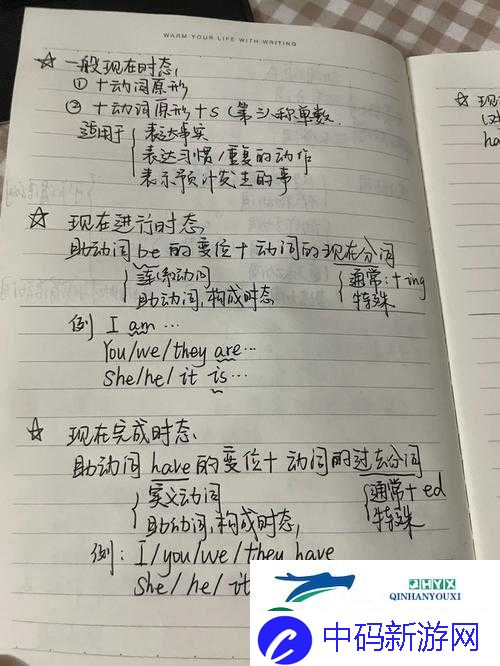 WARM YOUR LIFE WITH WRITING
☆ 一般现在时态,
① 十动词原形
② 十动词原形十s (第三人称单数.
适用于 { 表达事实
表达习惯/重复的动作
表示预计发生的事
☆ 现在进行时态,
助动词be的变位十动词的现在分词
{ 连系动词 { 通常:十ing
助动词,构成时态 特殊
例 I am …
You/we/they are…
She/he/it is…
☆ 现在完成时态、
助动词have的变位十动词的过去分词
{ 实义动词 { 通常十ed
助动词,构成时态, 特殊
例: I/you/we/they have
She/he/it
现
ha
QHYX
QINHANYOUXI
中码新游网